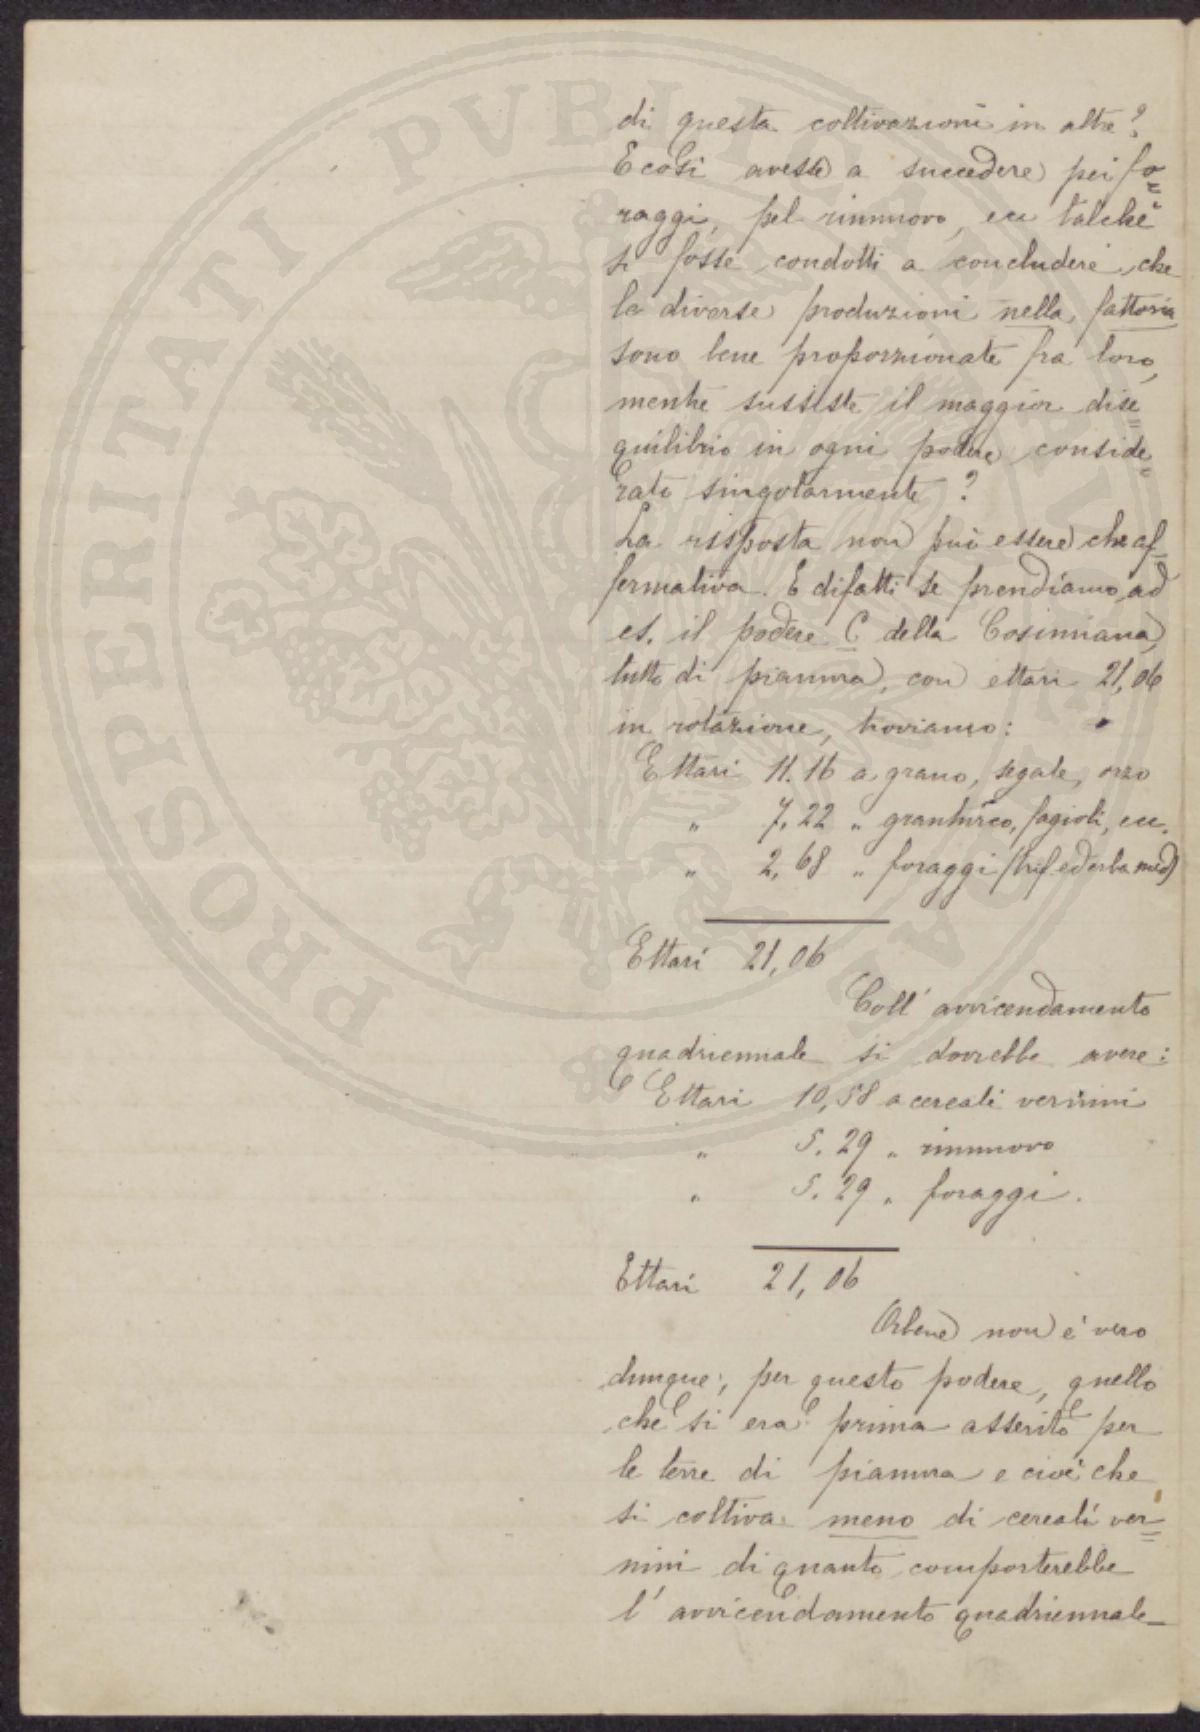 PUBLICAE
PROSPERITATI
di questa coltivazioni in altre?
E così avesse a succedere pei fo=
raggi, pel rinnuovo, ecc talchè
si fosse condotti a concludere che
le diverse produzioni nella fattoria
sono bene proporzionate fra loro,
mentre sussiste il maggior dise=
quilibrio in ogni podere conside=
rato singolarmente?
La risposta non può essere che af=
fermativa. E difatti se prendiamo ad
es. il podere C della Cosimiana,
tutto di pianura, con ettari 21,06
in rotazione, troviamo:
Ettari 11.16 a grano, segale, orzo
" 7,22 " granturco, fagioli, ecc.
" 2,68 " foraggi (trif. ed erba med)
Ettari 21,06
Coll' avvicendamento
quadriennale si dovrebbe avere:
Ettari 10,58 a cereali vernini
" 5.29 " rinnuovo
" 5.29 " foraggi.
Ettari 21,06
Orbene non è vero
dunque, per questo podere, quello
che si era prima asserito per
le terre di pianura e cioè che
si coltiva meno di cereali ver=
nini di quanto comporterebbe
l' avvicendamento quadriennale